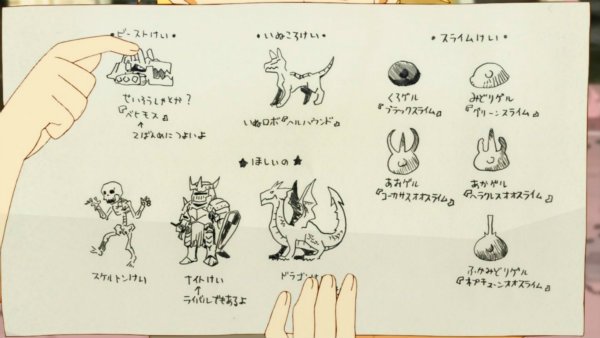 ・ビーストけい
せいろうしゃとか？
『ベヒモス』
↑
とばん​めにつよいよ
・いぬころけい
いぬロボ『ヘルハウンド』
・スライムけい
くろゲル
『ブラックスライム』
みどりゲル
『グリーンスライム』
あおゲル
『コーカサスオオスライム』
あかゲル
『ヘラクレスオオスライム』
ふかみどりゲル
『ネプチューンオオスライム』
★ほしいの★
スケルトンけい
ナイトけい
↑
ライバルでもあるよ
ドラゴン